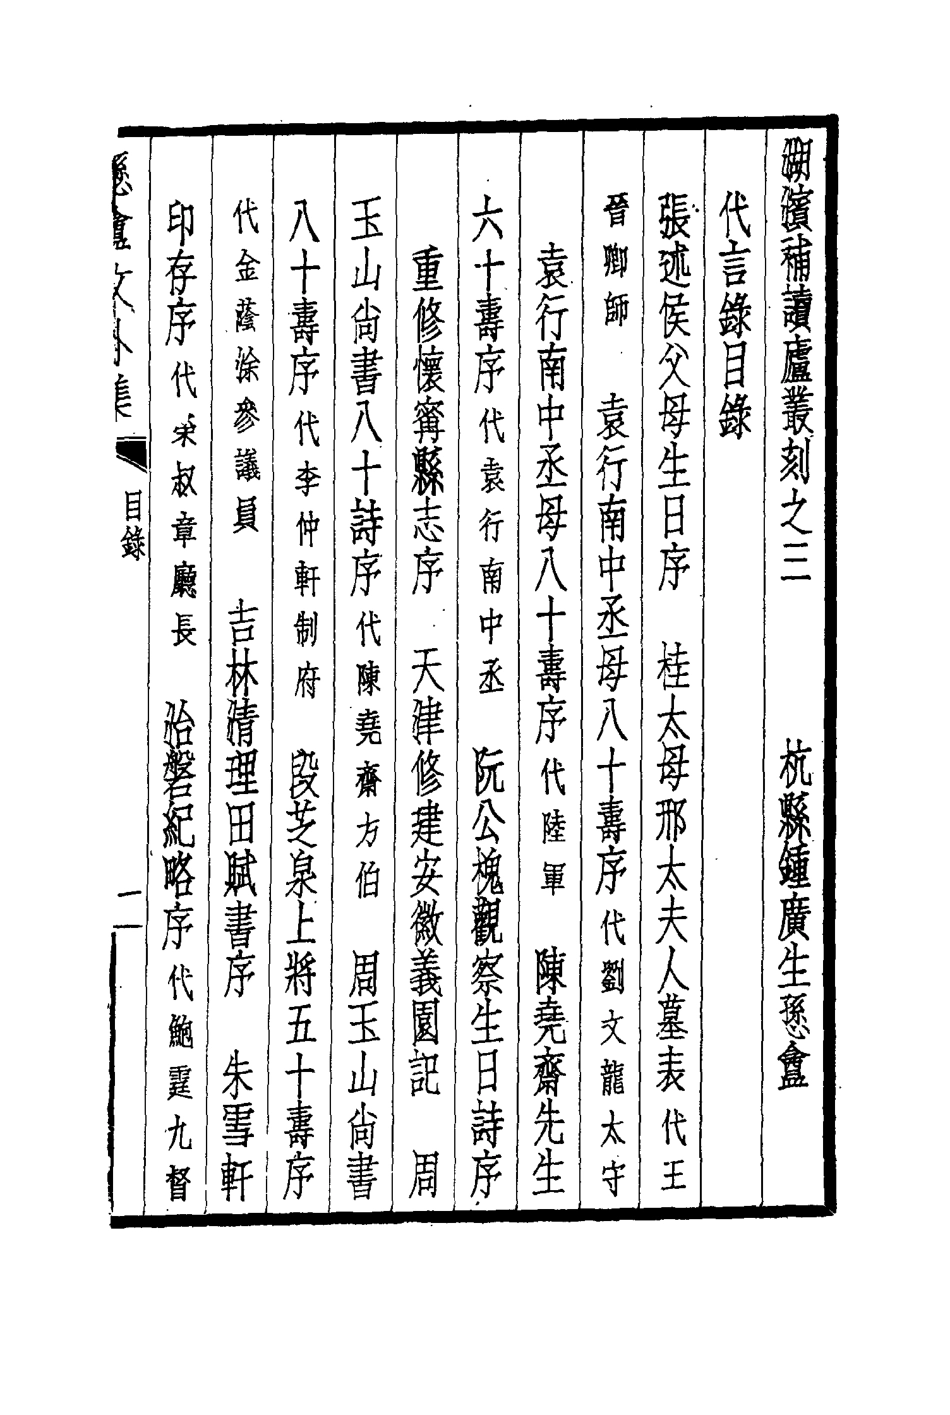 湖濱補讀廬叢刻之三　杭縣鍾廣生愻盦
代言錄目錄
張述侯父母生日序　桂太母邢太夫人墓表代王
晉卿師　袁行南中丞母八十壽序代劉文龍太守
袁行南中丞母八十壽序代陸軍　陳堯齋先生
六十壽序代袁行南中丞　阮公槐觀察生日詩序
重修懷甯縣志序　天津修建安徽義園記　周
玉山尙書八十詩序代陳堯齋方伯　周玉山尙書
八十壽序代李仲軒制府　段芝泉上將五十壽序
代金蔭涂參議員　吉林淸理田賦書序　朱雪軒
印存序代宋叔章廳長　治磐紀略序代鮑霆九督
愻盦文外集　目錄　一